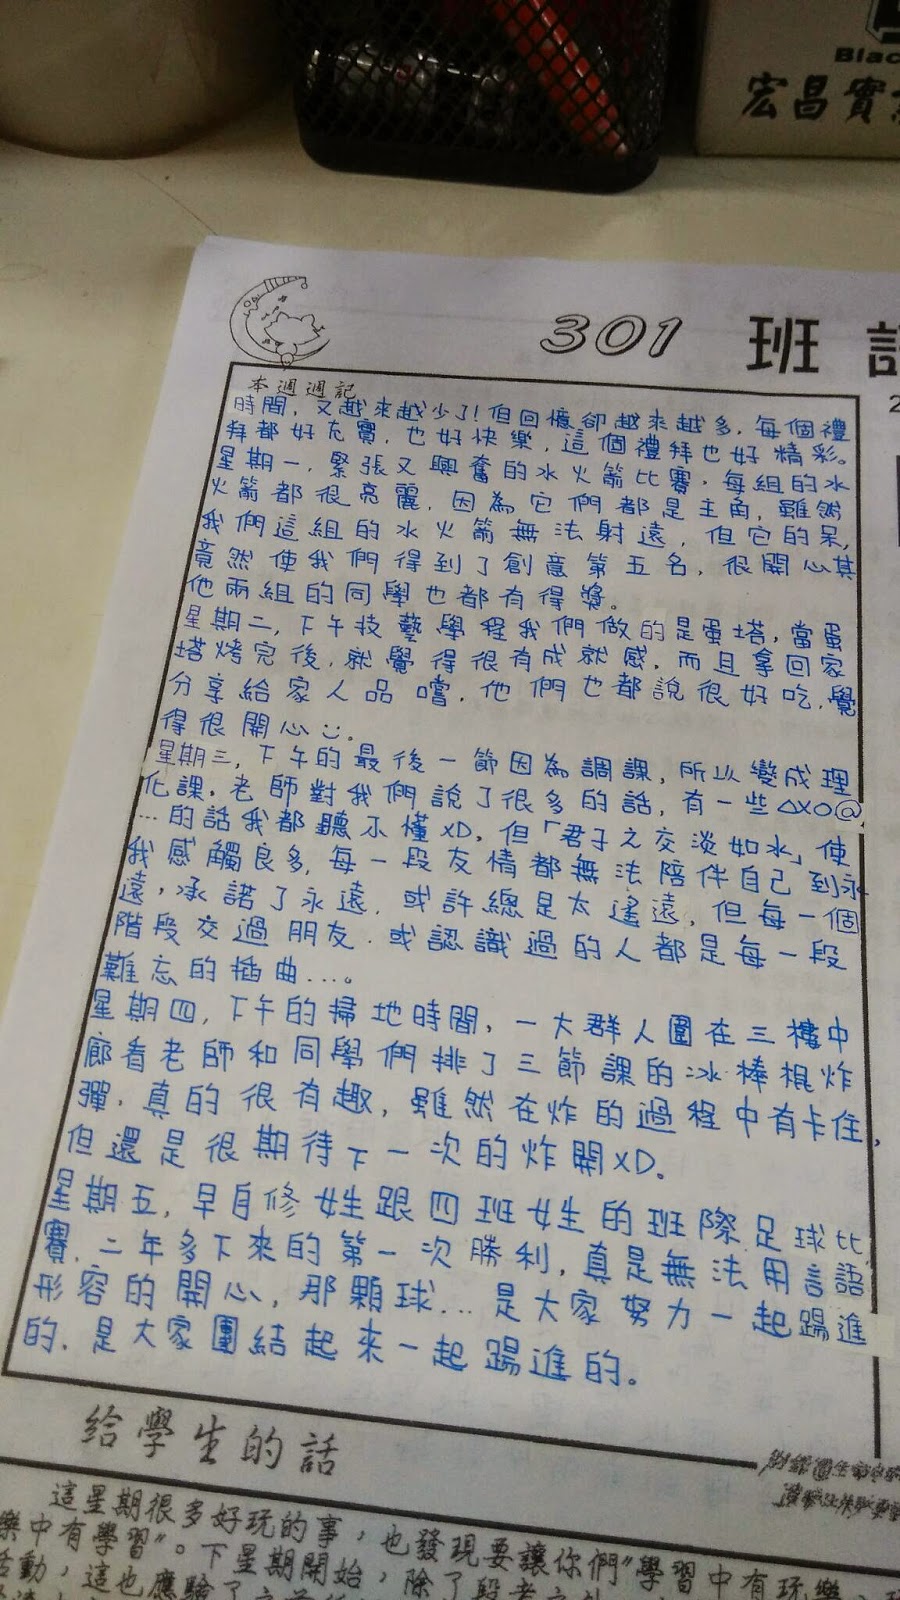 Blac
宏昌實
301 班
2
本週週記
時間，又越來越少了！但回憶卻越來越多，每個禮
拜都好充實，也好快樂，這個禮拜也好精彩。
星期一，緊張又興奮的水火箭比賽，每組的水
火箭都很亮麗，因為它們都是主角，雖然
我們這組的水火箭無法射遠，但它的呆，
竟然使我們得到了創意第五名，很開心其
他兩組的同學也都有得獎。
星期二，下午技藝學程我們做的是蛋塔，當蛋
塔烤完後，就覺得很有成就感，而且拿回家
分享給家人品嚐，他們也都說很好吃，覺
得很開心 :)。
星期三，下午的最後一節因為調課，所以變成理
化課，老師對我們說了很多的話，有一些△XO@
…的話我都聽不懂XD，但「君子之交淡如水」使
我感觸良多，每一段友情都無法陪伴自己到永
遠，承諾了永遠，或許總是太遙遠，但每一個
階段交過朋友，或認識過的人都是每一段
難忘的插曲…。
星期四，下午的掃地時間，一大群人圍在三樓中
廊看老師和同學們排了三節課的冰棒棍炸
彈，真的很有趣，雖然在炸的過程中有卡住，
但還是很期待下一次的炸開XD。
星期五，早自修女生跟四班女生的班際足球比
賽，二年多下來的第一次勝利，真是無法用言語
形容的開心，那顆球…是大家努力一起踢進
的，是大家團結起來一起踢進的。
給學生的話
這星期很多好玩的事，也發現要讓你們"學習中有玩樂
樂中有學習"。下星期開始，除了段考
活動，這也應驗了